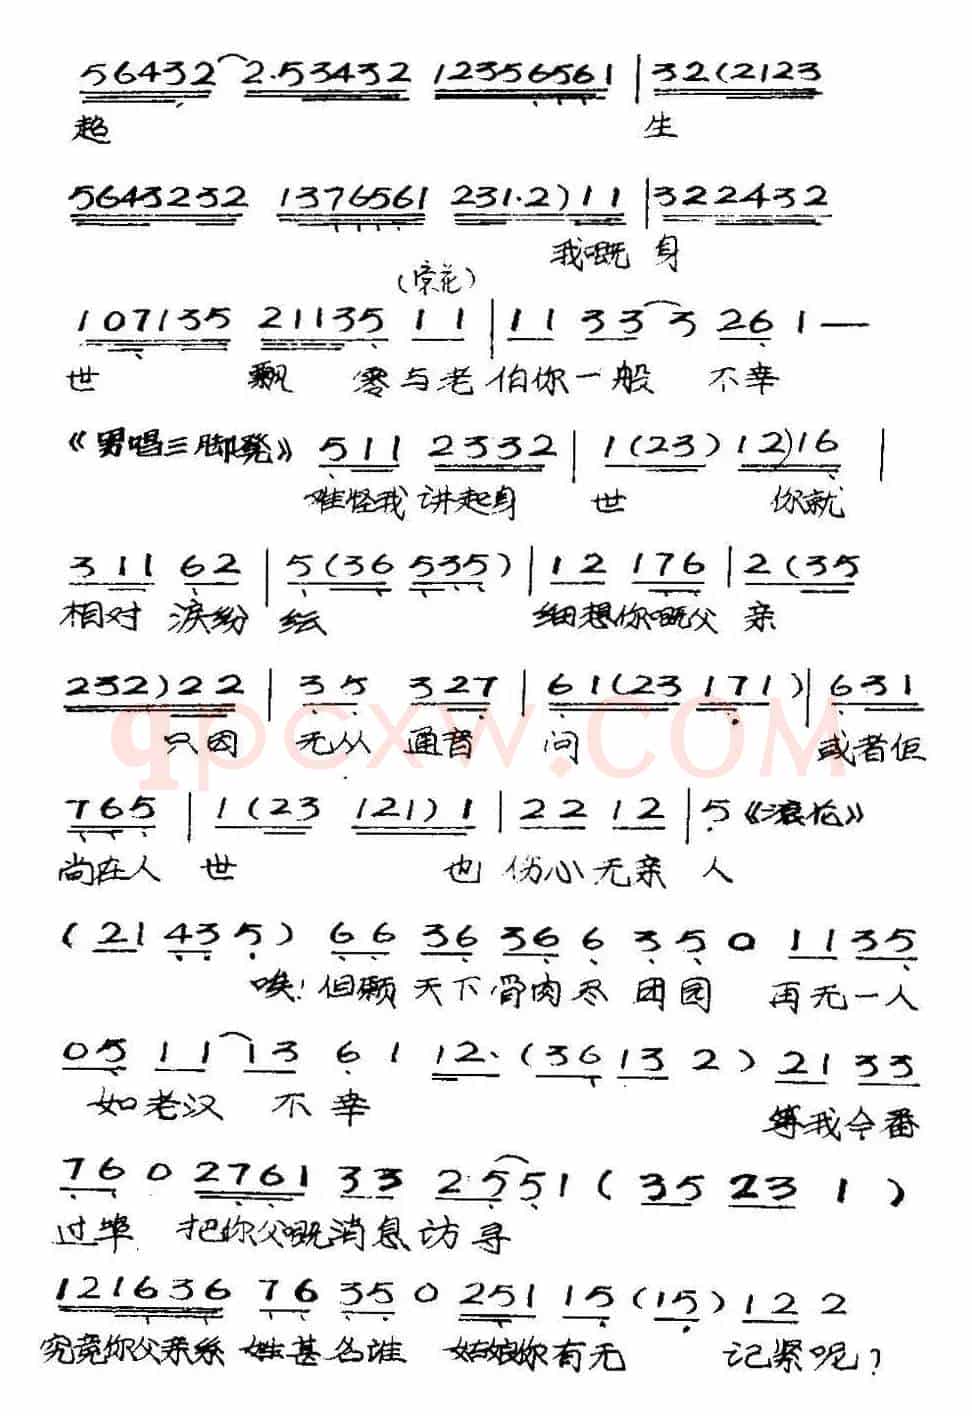 56432 2·53432 12356561 | 32(2123
趋 生
5643232 1376561 231·2)11 | 322432
我嘅 身
(滚花)
107135 21135 11 | 11 33 3 26 1 —
世 飘 零与老伯你一般 不幸
《男唱三脚凳》 511 2332 | 1(23) 12)16 |
难怪我 讲起身 世 你就
311 62 | 5(36 535) | 12 176 | 2(35
相对 泪纷 纭 细想你嘅父 亲
232)22 | 35 327 | 61(23 171) | 631
只因 无从 通音 问 或者佢
765 | 1(23 121)1 | 22 12 | 5《滚花》
尚在人 世 也 伤心无亲 人
(21 435) 66 36 36 6 35 0 11 35
唉!但愿 天下骨肉尽 团园 再无一人
05 11 13 6 1 12·(36 13 2) 21 33
如老汉 不幸 等我今番
76 0 2761 33 2·5 51(35 23 1)
过埠 把你父嘅消息访寻
121636 76 35 0 251 15(15) 12 2
究竟你父亲系 姓甚名谁 姑娘你有无 记紧呢?
qpcxw.COM